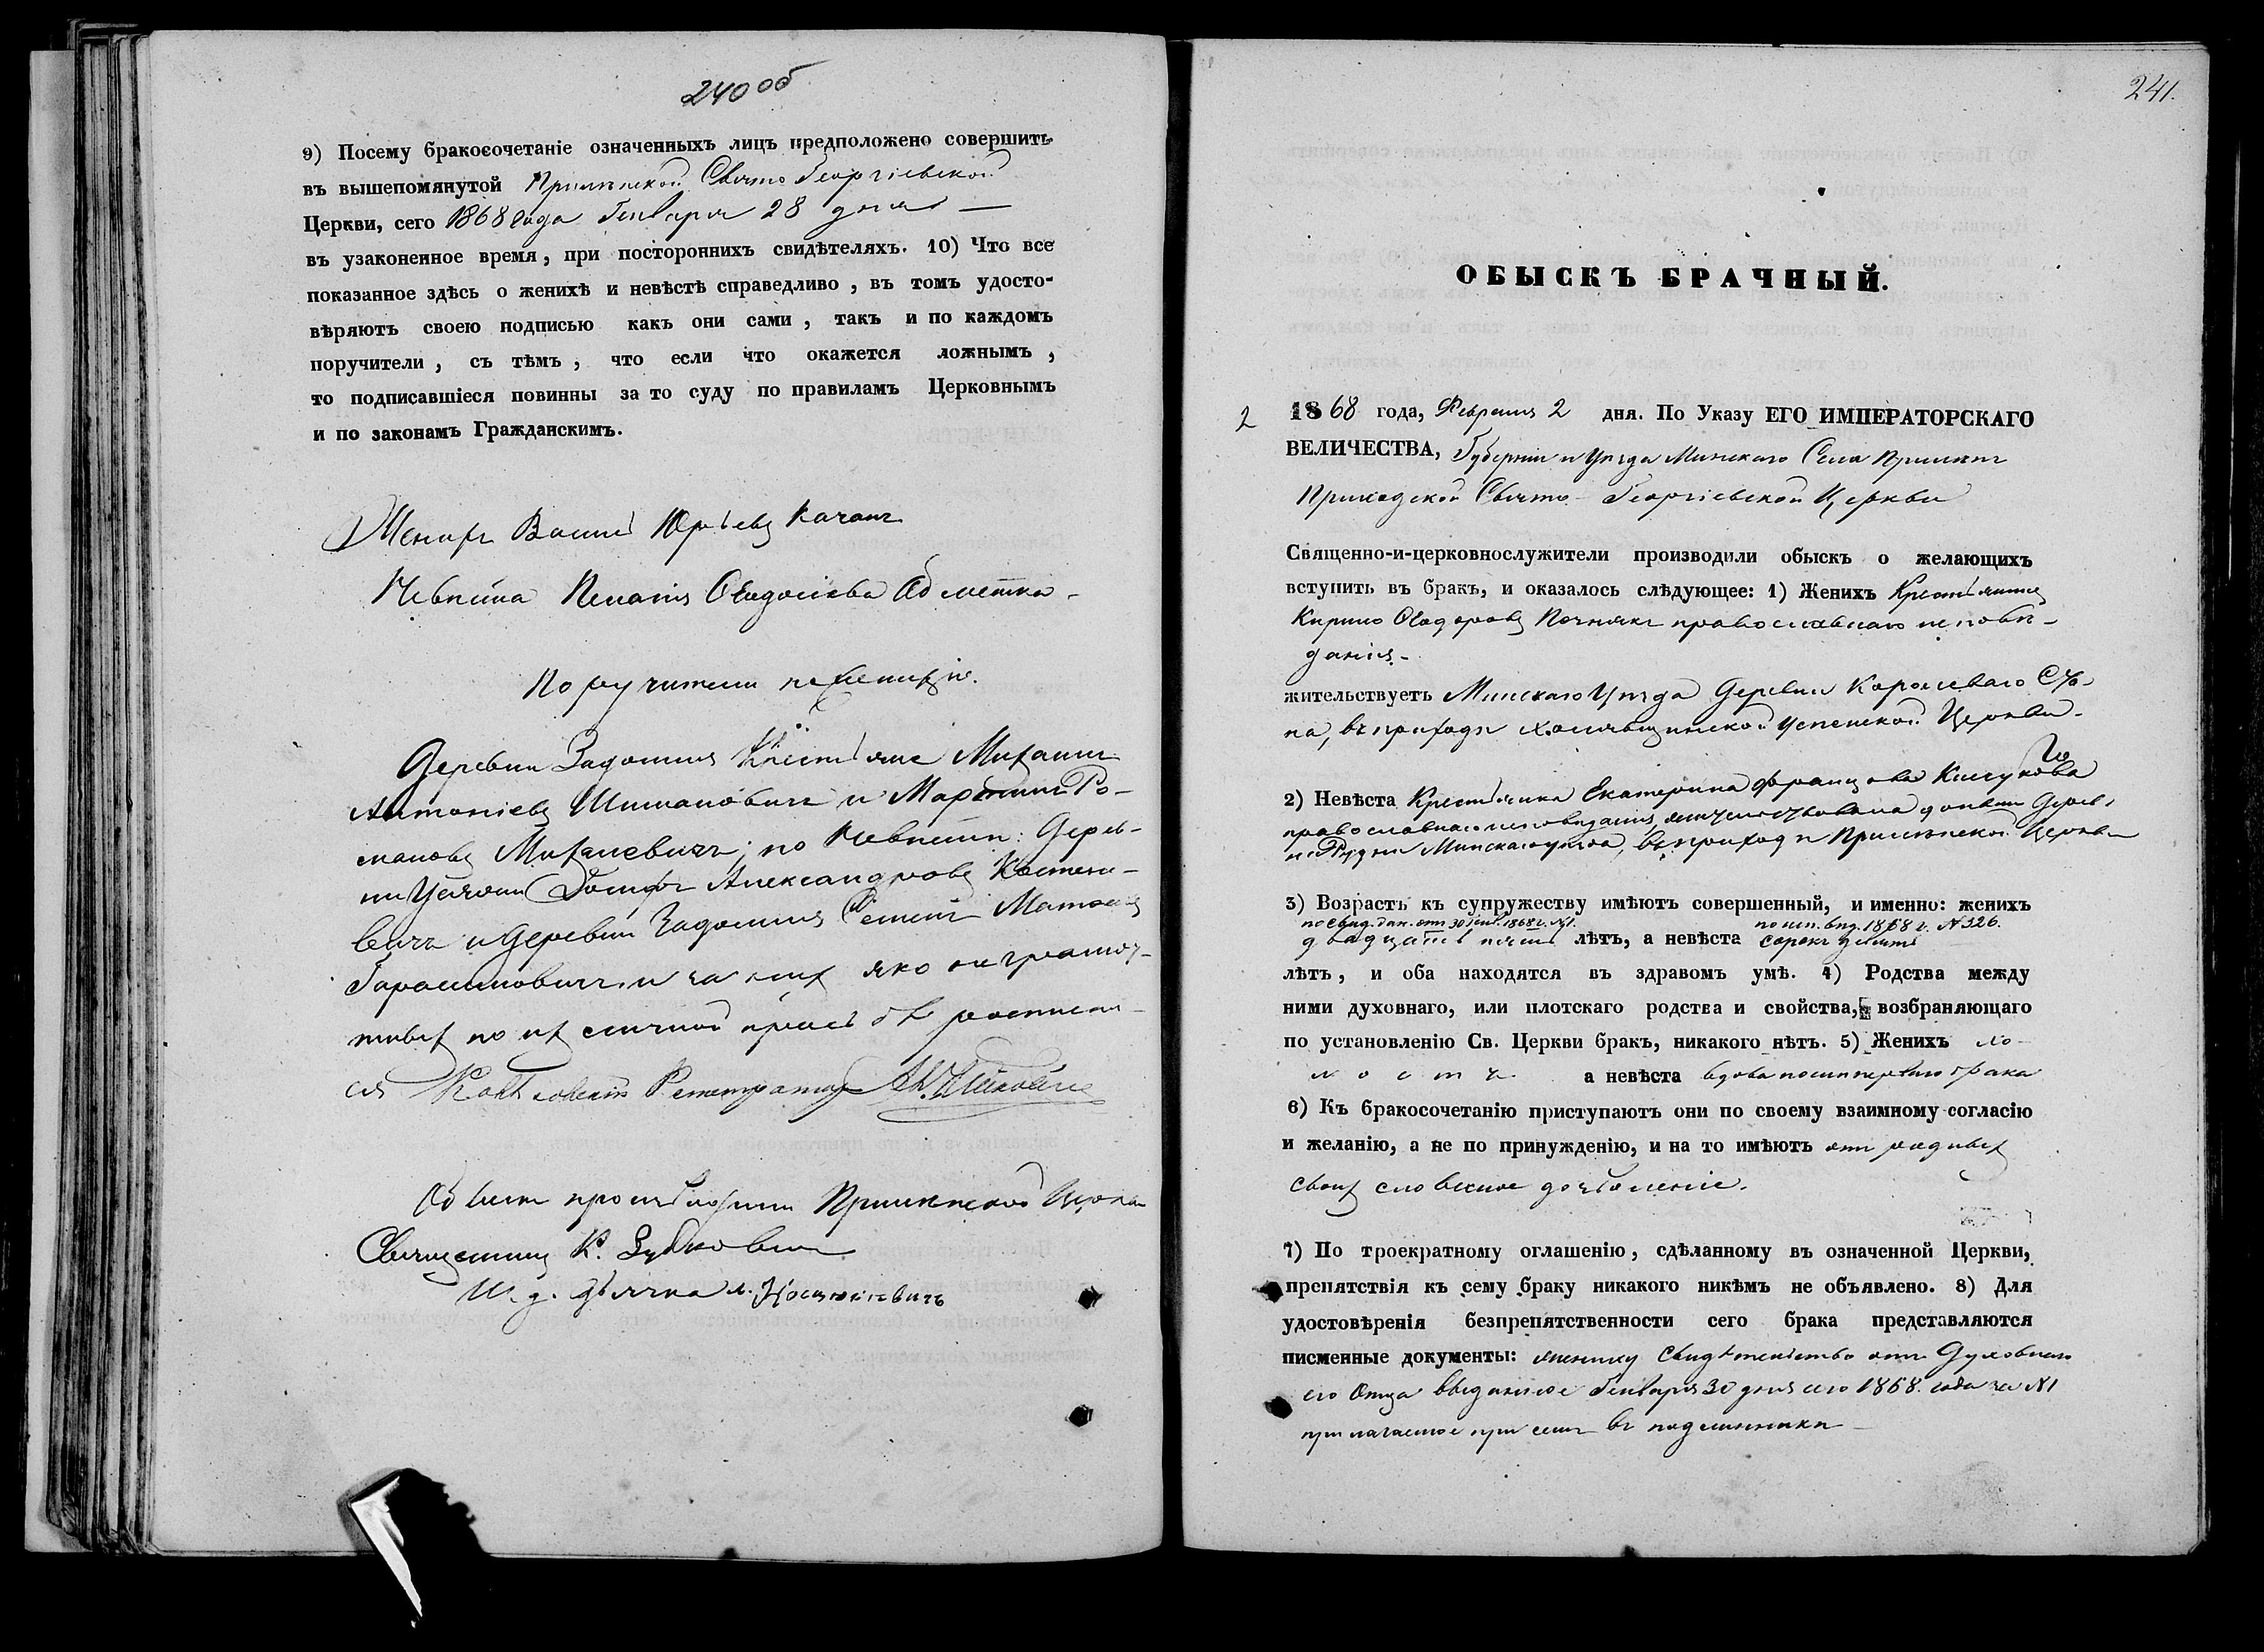 240 об
9) Посему бракосочетаніе означенныхъ лицъ предположено совершить
въ вышепомянутой Прилѣпской Свято Георгіевской
Церкви, сего 1868 года Генваря 28 дня —
въ узаконенное время, при постороннихъ свидѣтеляхъ. 10) Что все
показанное здѣсь о женихѣ и невѣстѣ справедливо, въ томъ удосто-
вѣряютъ своею подписью какъ они сами, такъ и по каждомъ
поручители, съ тѣмъ, что если что окажется ложнымъ,
то подписавшіеся повинны за то суду по правиламъ Церковнымъ
и по законамъ Гражданскимъ.
Женихъ Василій Юрьевъ Качанъ
Невѣста Пелагія Ѳеодосіева
Поручители по женихѣ.
Деревни Задомля Крестьяне Михаилъ
Антоніевъ Шимановичъ и Мартинъ Ро-
мановъ Михалевичъ; по Невѣстѣ: Дерев-
ни Усяжи Іосифъ Александровъ
вичъ и Деревни Задомля Семенъ
Гарасимовичъ, и за нихъ яко неграмот-
ныхъ по ихъ личной просьбѣ росписал-
ся Регистраторъ
Обыскъ производили Прилѣпской Церкви
Священникъ К. Зубковичъ
И. д. дьячка
241.
ОБЫСКЪ БРАЧНЫЙ.
2 1868 года, Февраля 2 дня. По Указу ЕГО ИМПЕРАТОРСКАГО
ВЕЛИЧЕСТВА, Губерніи и Уѣзда Минскаго Села Прилѣпъ
Приходской Свято-Георгіевской Церкви
Священно-и-церковнослужители производили обыскъ о желающихъ
вступить въ бракъ, и оказалось слѣдующее: 1) Женихъ Крестьянинъ
Кирило Ѳеодоровъ православнаго исповѣ-
данія.
жительствуетъ Минскаго Уѣзда Деревни Королеваго Ста-
на, въ приходѣ Успенской Церкви.
2) Невѣста Крестьянка Екатерина Францова
православнаго исповѣданія, жительствовала донынѣ Дерев-
нѣ Рудни Минскаго уѣзда, въ приходѣ Прилѣпской Церкви
3) Возрастъ къ супружеству имѣютъ совершенный, и именно: женихъ
по свид. дан. отъ 30 Генв. 1868 г. №1. по исп. вѣд. 1868 г. №326.
двадцать пять лѣтъ, а невѣста сорокъ девять
лѣтъ, и оба находятся въ здравомъ умѣ. 4) Родства между
ними духовнаго, или плотскаго родства и свойства, возбраняющаго
по установленію Св. Церкви бракъ, никакого нѣтъ. 5) Женихъ хо-
лостъ а невѣста вдова послѣ перваго брака
6) Къ бракосочетанію приступаютъ они по своему взаимному согласію
и желанію, а не по принужденію, и на то имѣютъ отъ родныхъ
своихъ словесное дозволеніе.
7) По троекратному оглашенію, сдѣланному въ означенной Церкви,
препятствія къ сему браку никакого никѣмъ не объявлено. 8) Для
удостовѣренія безпрепятственности сего брака представляются
писменные документы: жениху Свидѣтельство отъ Духовнаго
его Отца выданное Генваря 30 дня сего 1868. года за №1
прилагаемое при семъ въ подлинникѣ